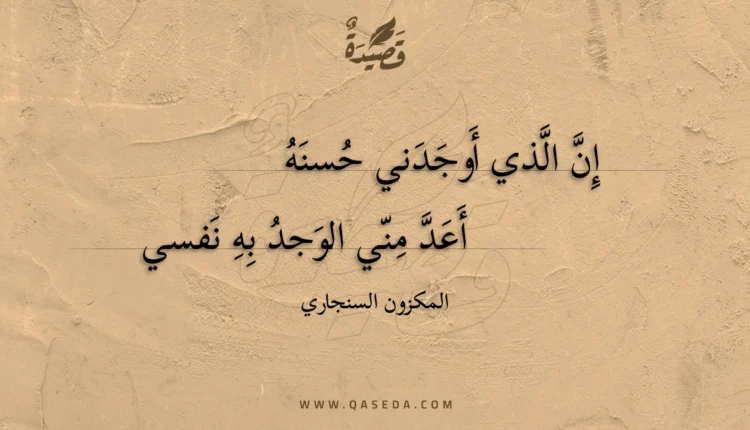 قَصِيدَةٌ
إِنَّ الَّذي أَوجَدَني حُسنَهُ
أَعَدَّ مِنّي الوَجدُ بِهِ نَفسي
المكزون السنجاري
WWW.QASEDA.COM